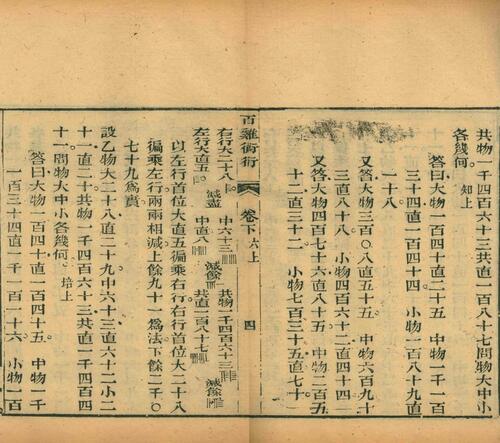 共物一千四百六十三共直一百八十七問物大中小
各幾何 知上
答曰大物一百四十直二十五 中物一千一百
三十四直一百四十四 小物一百八十九直
一十八
又答大物三百〇八直五十五 中物六百九十
三直八十八 小物四百六十二直四十四
又答大物四百七十六直八十五 中物二百五
十二直三十二 小物七百三十五直七十
百雞術衍 卷下 六上 四
右行大二十八 中六十三 共物一千四百六十三
減盡 減餘 減餘
左行大直五 中直八 共直一百八十七
以左行首位大直五徧乘右行右行首位大二十八
徧乘左行兩兩相減上餘九十一爲法下餘二千〇
七十九爲實
設乙物大二十八直二十九中六十三直六十二小二
十一直二十共物一千四百六十三共直一千四百四
十一問物大中小各幾何 培上
答曰大物一百四十直一百四十五 中物一千
一百三十四直一千一百一十六 小物一百